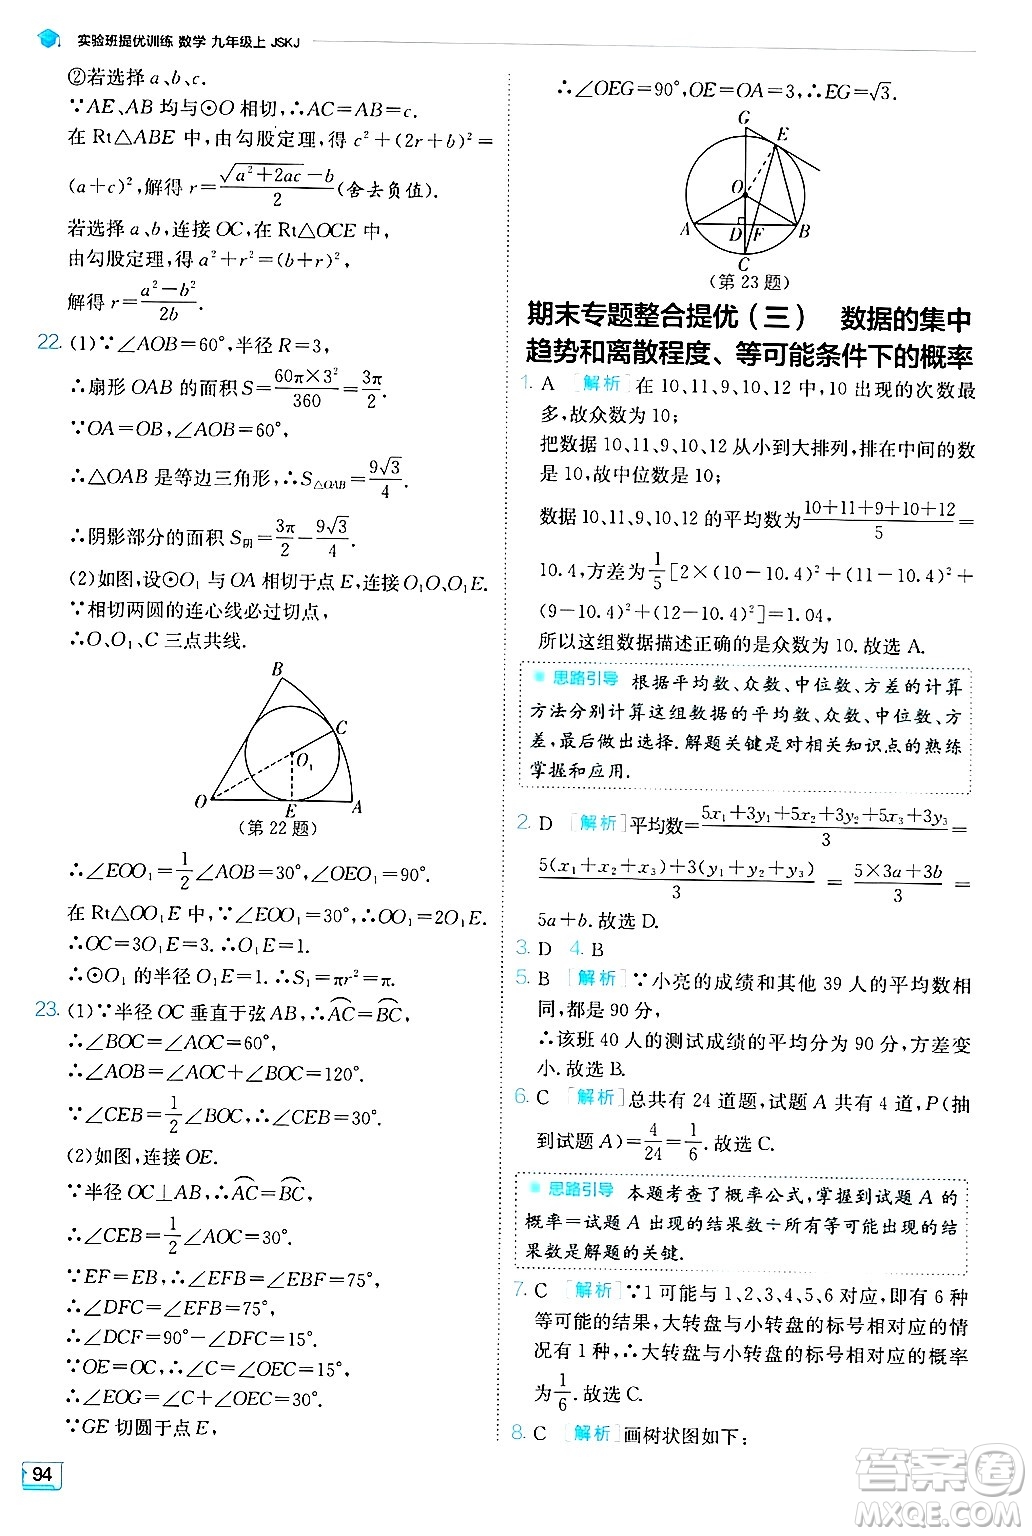 实验班提优训练 数学 九年级上 JSKJ
②若选择 a、b、c.
∵AE、AB 均与⊙O 相切,∴AC=AB=c.
在 Rt△ABE 中,由勾股定理,得 c²+(2r+b)²=
(a+c)²,解得 r=(√(a²+2ac)-b)/2(舍去负值).
若选择 a、b,连接 OC,在 Rt△OCE 中,
由勾股定理,得 a²+r²=(b+r)²,
解得 r=(a²-b²)/2b.
22. (1)∵∠AOB=60°,半径 R=3,
∴扇形 OAB 的面积 S=(60π×3²)/360=3π/2.
∵OA=OB,∠AOB=60°,
∴△OAB 是等边三角形,∴S△OAB=9√3/4.
∴阴影部分的面积 S阴=3π/2-9√3/4.
(2)如图,设⊙O₁ 与 OA 相切于点 E,连接 O₁O、O₁E.
∵相切两圆的连心线必过切点,
∴O、O₁、C 三点共线.
B
C
O₁
O
E
A
(第 22 题)
∴∠EOO₁=1/2∠AOB=30°,∠OEO₁=90°.
在 Rt△OO₁E 中,∵∠EOO₁=30°,∴OO₁=2O₁E.
∴OC=3O₁E=3. ∴O₁E=1.
∴⊙O₁ 的半径 O₁E=1. ∴S=πr²=π.
23. (1)∵半径 OC 垂直于弦 AB,∴A͡C=B͡C.
∴∠BOC=∠AOC=60°,
∴∠AOB=∠AOC+∠BOC=120°.
∵∠CEB=1/2∠BOC,∴∠CEB=30°.
(2)如图,连接 OE.
∵半径 OC⊥AB,∴A͡C=B͡C,
∴∠CEB=1/2∠AOC=30°.
∵EF=EB,∴∠EFB=∠B=75°.
∴∠DFC=∠EFB=75°.
∴∠DCF=90°-∠DFC=15°.
∵OE=OC,∴∠C=∠OEC=15°.
∴∠EOG=∠C+∠OEC=30°.
∵GE 切圆于点 E,
94
∴∠OEG=90°,OE=OA=3,∴EG=√3.
G
E
O
A
D
F
B
C
(第 23 题)
期末专题整合提优(三) 数据的集中
趋势和离散程度、等可能条件下的概率
1. A [解析]在 10,11,9,10,12 中,10 出现的次数最
多,故众数为 10;
把数据 10,11,9,10,12 从小到大排列,排在中间的数
是 10,故中位数是 10;
数据 10,11,9,10,12 的平均数为(10+11+9+10+12)/5=
10.4,方差为1/5[2×(10-10.4)²+(11-10.4)²+
(9-10.4)²+(12-10.4)²]=1.04,
所以这组数据描述正确的是众数为 10.故选 A.
思路引导 根据平均数、众数、中位数、方差的计算
方法分别计算这组数据的平均数、众数、中位数、方
差,最后做出选择.解题关键是对相关知识点的熟练
掌握和应用.
2. D [解析]平均数=(5x₁+3y₁+5x₂+3y₂+5x₃+3y₃)/3=
(5(x₁+x₂+x₃)+3(y₁+y₂+y₃))/3=(5×3a+3b)/3=
5a+b.故选 D.
3. D 4. B
5. B [解析]∵小亮的成绩和其他 39 人的平均数相
同,都是 90 分,
∴该班 40 人的测试成绩的平均分为 90 分,方差变
小.故选 B.
6. C [解析]总共有 24 道题,试题 A 共有 4 道,P(抽
到试题 A)=4/24=1/6.故选 C.
思路引导 本题考查了概率公式,掌握到试题 A 的
概率=试题 A 出现的结果数÷所有等可能出现的结
果数是解题的关键.
7. C [解析]∵1 可能与 1、2、3、4、5、6 对应,即有 6 种
等可能的结果,大转盘与小转盘的标号相对应的情
况有 1 种,∴大转盘与小转盘的标号相对应的概率
为1/6.故选 C.
8. C [解析]画树状图如下:
答案圈
MXQE.COM